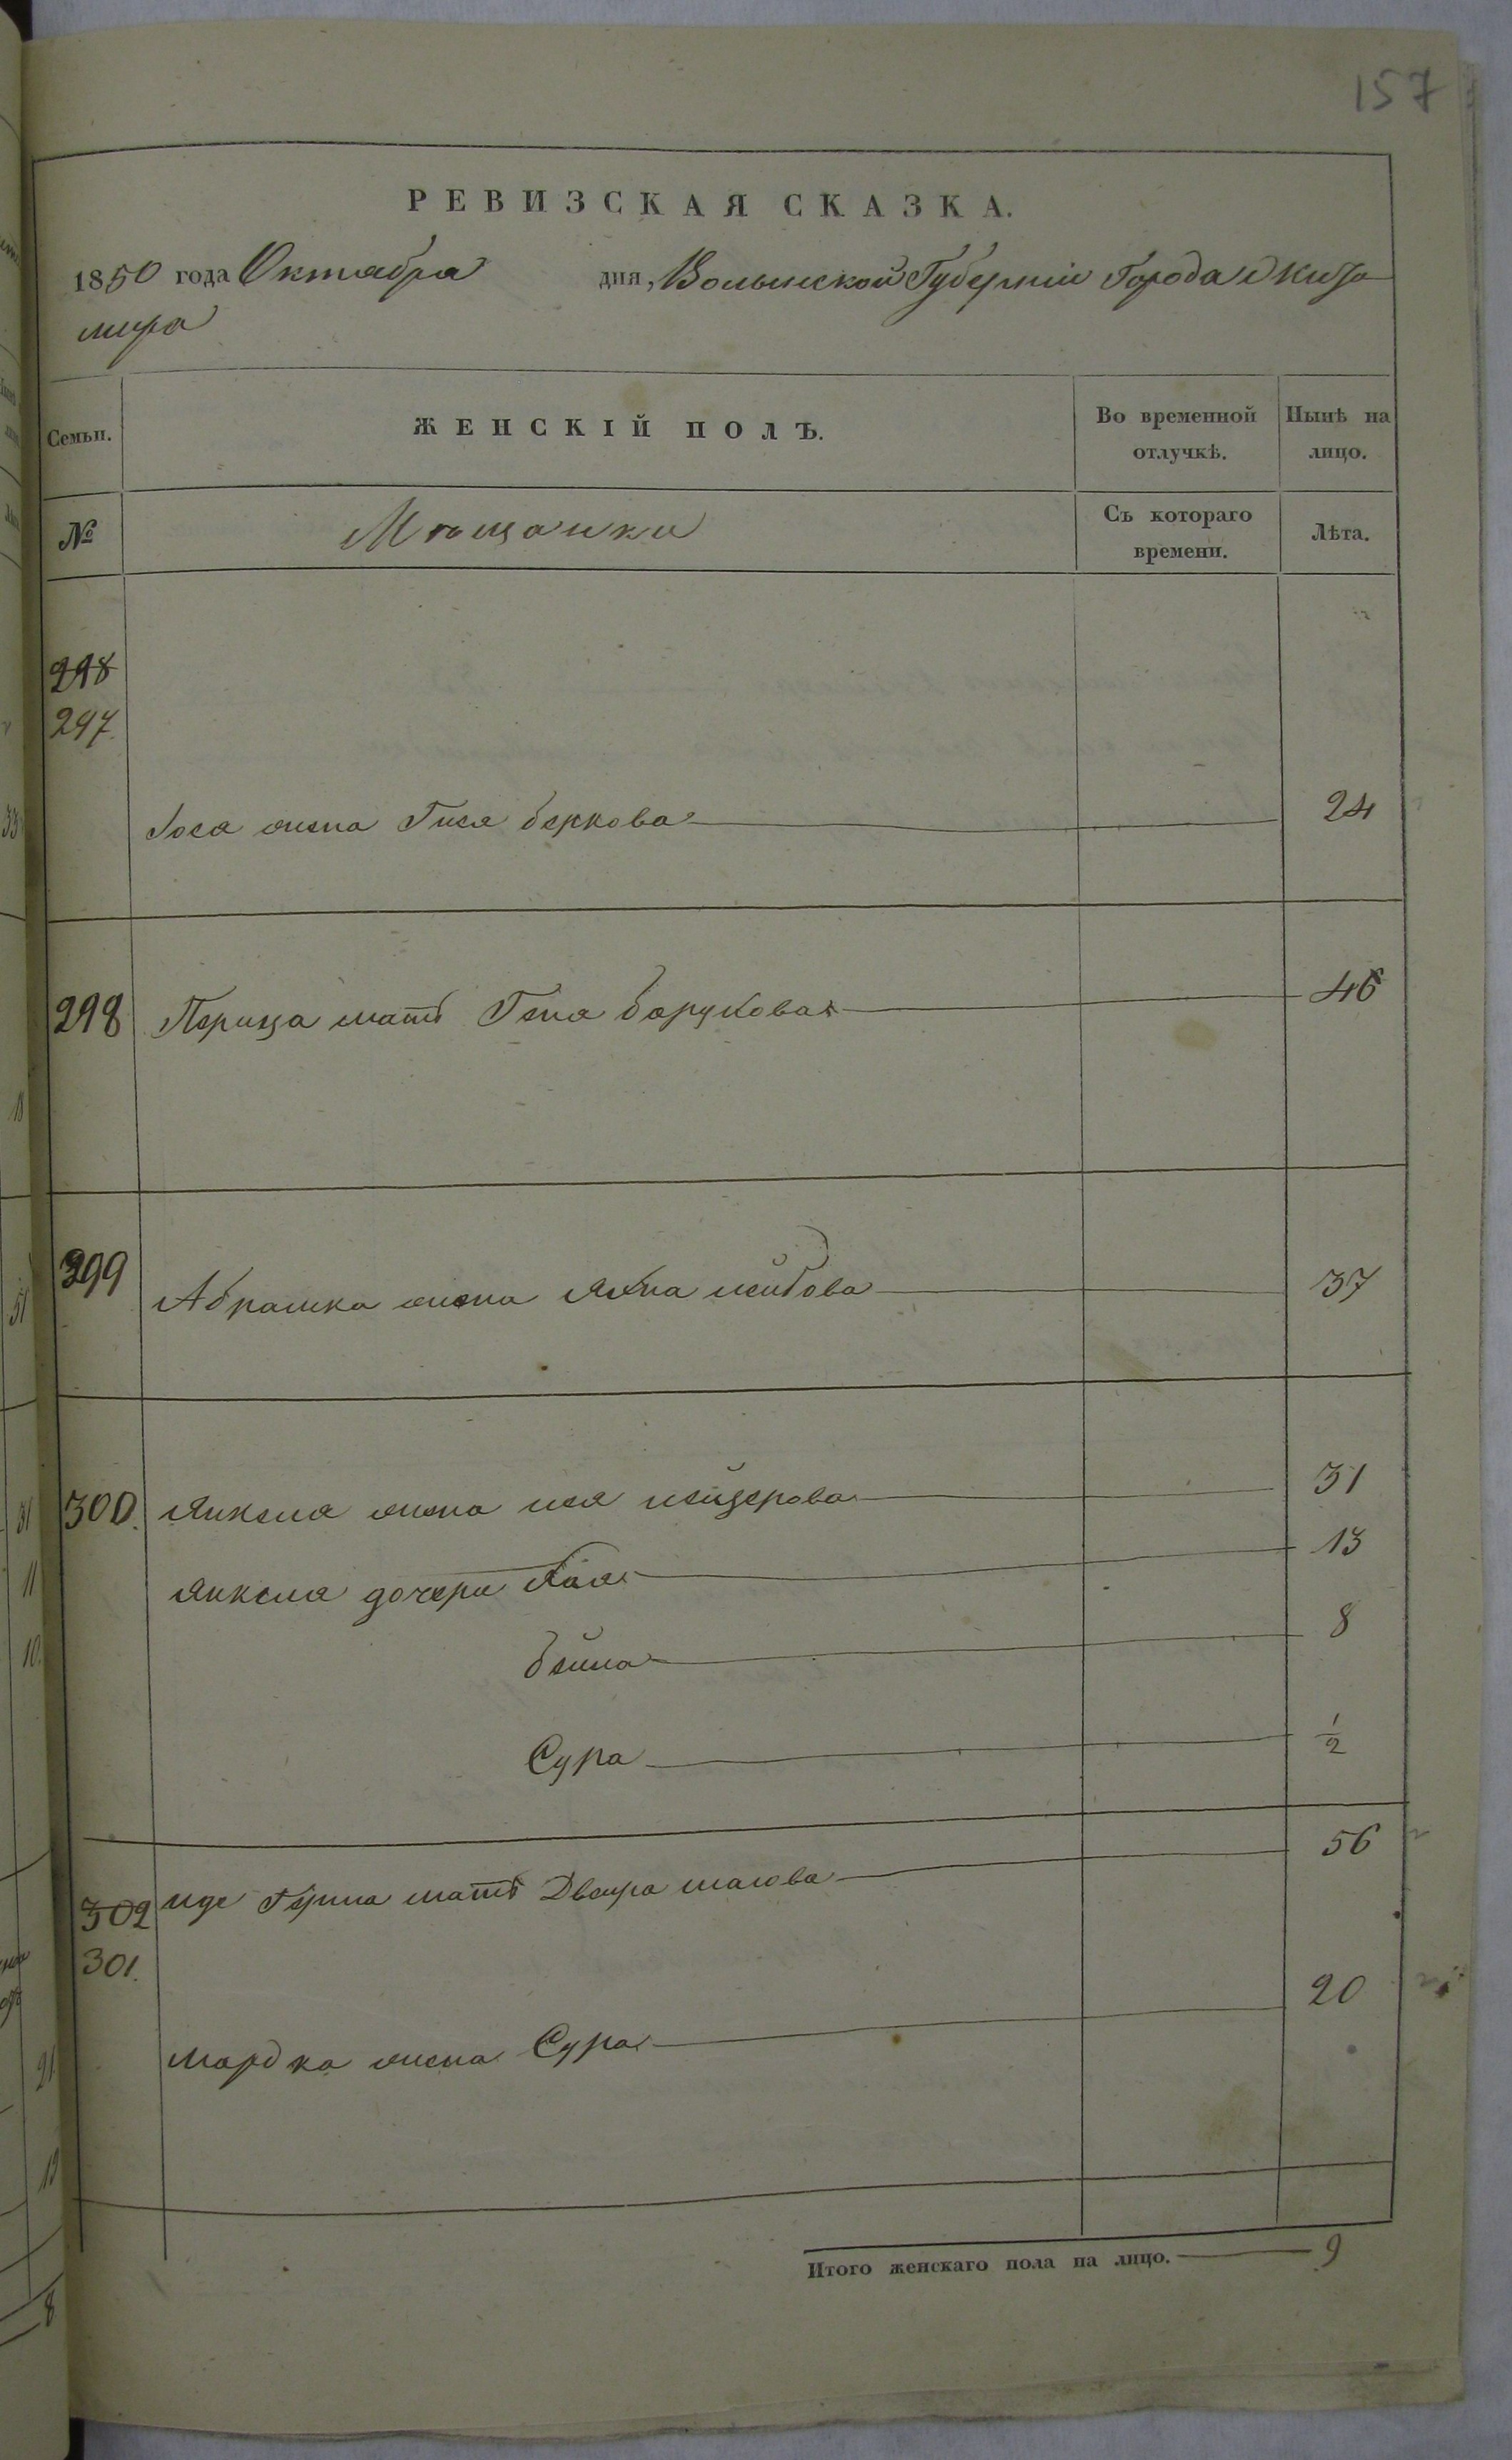 157
РЕВИЗСКАЯ СКАЗКА.
1850 года Октября дня, Волынской Губерніи Города Жито
мира
Семьи. ЖЕНСКІЙ ПОЛЪ. Во временной отлучкѣ. Нынѣ на лицо.
№ Мѣщанки Съ котораго времени. Лѣта.
298
297
Іося жена Гися беркова 24
298 Перица мать Геня барухова 46
299 Абрашка жена Яхна лейбова 37
300. Янкеля жена лея лейзерова 31
Янкеля дочери Хая 13
бейла 8
Сура 1/2
302 мать Двейра 56
301.
мардка жена Сура 20
Итого женскаго пола на лицо. 9